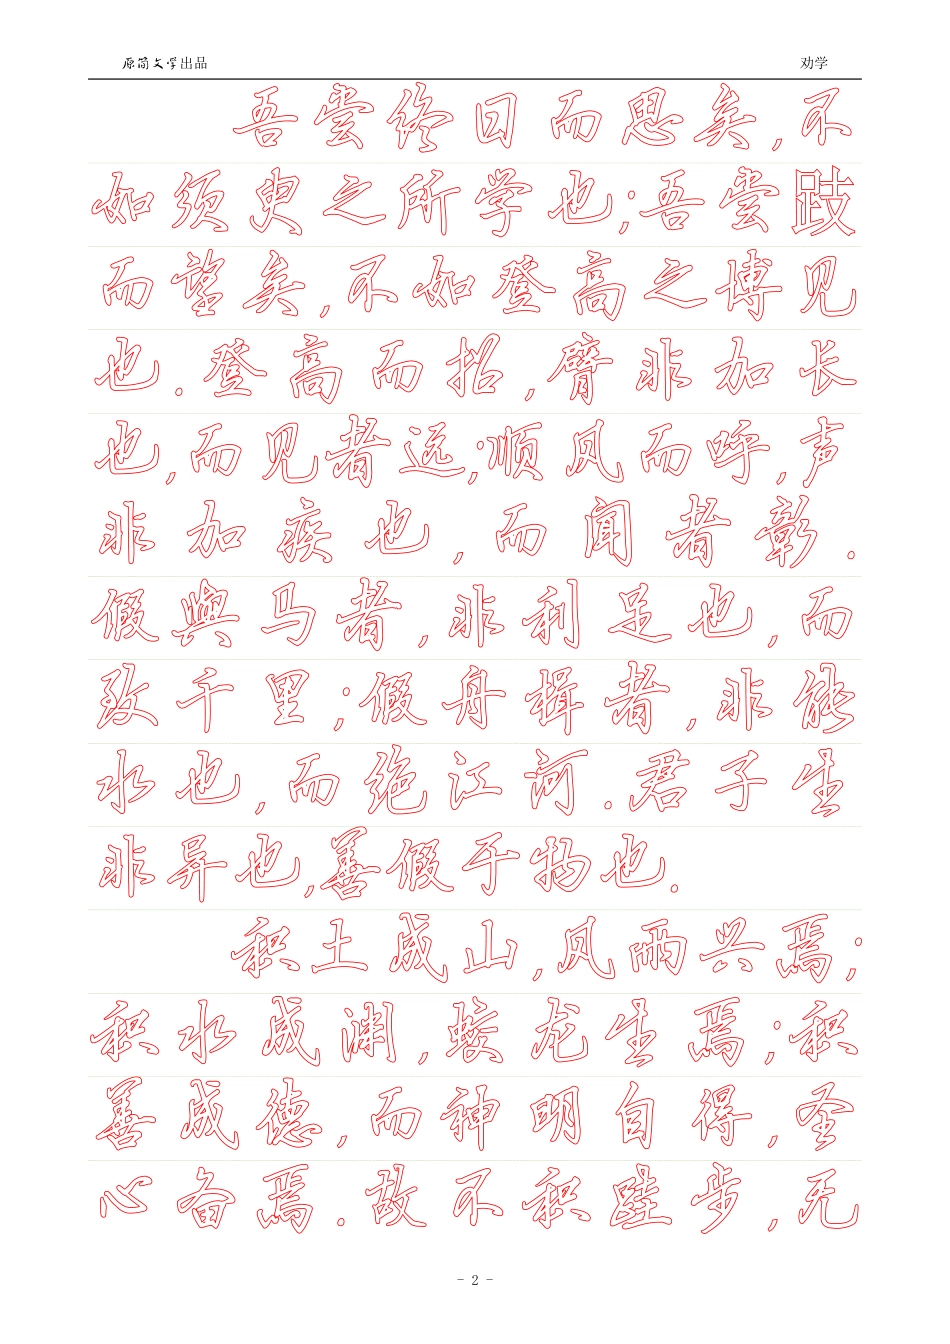 原简文学出品 劝学
吾尝终日而思矣,不
如须臾之所学也;吾尝跂
而望矣,不如登高之博见
也.登高而招,臂非加长
也,而见者远;顺风而呼,声
非加疾也,而闻者彰.
假舆马者,非利足也,而
致千里;假舟楫者,非能
水也,而绝江河.君子生
非异也,善假于物也.
积土成山,风雨兴焉;
积水成渊,蛟龙生焉;积
善成德,而神明自得,圣
心备焉.故不积跬步,无
- 2 -